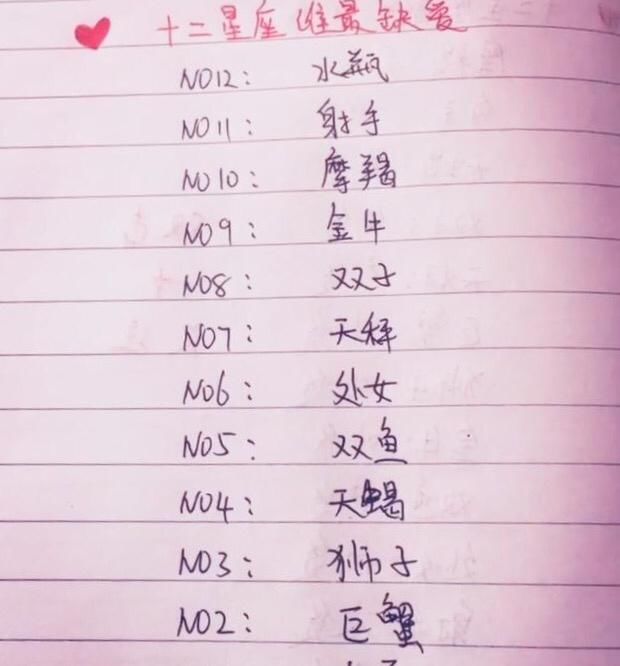 十二星座谁最缺爱
NO12: 水瓶
NO11: 射手
NO10: 摩羯
NO9: 金牛
NO8: 双子
NO7: 天秤
NO6: 处女
NO5: 双鱼
NO4: 天蝎
NO3: 狮子
NO2: 巨蟹